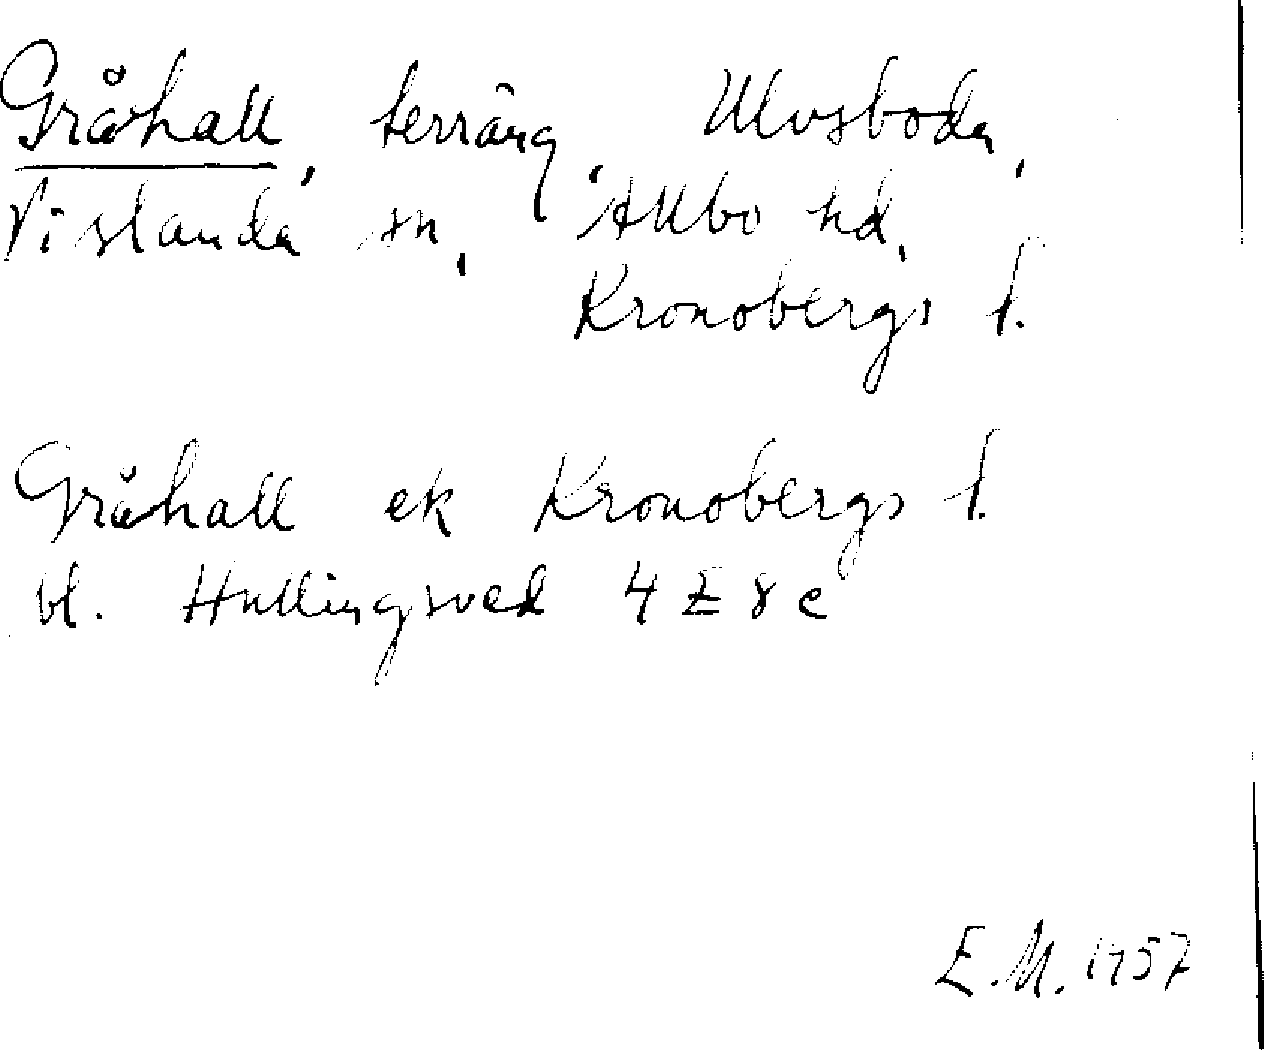 Gråhall, terräng, Ulvsboda,
Vislanda sn, Allbo hd,
Kronobergs l.
Gråhall ek Kronobergs l.
bl. Hullingsved 4 E 8 e
E.M. 1957